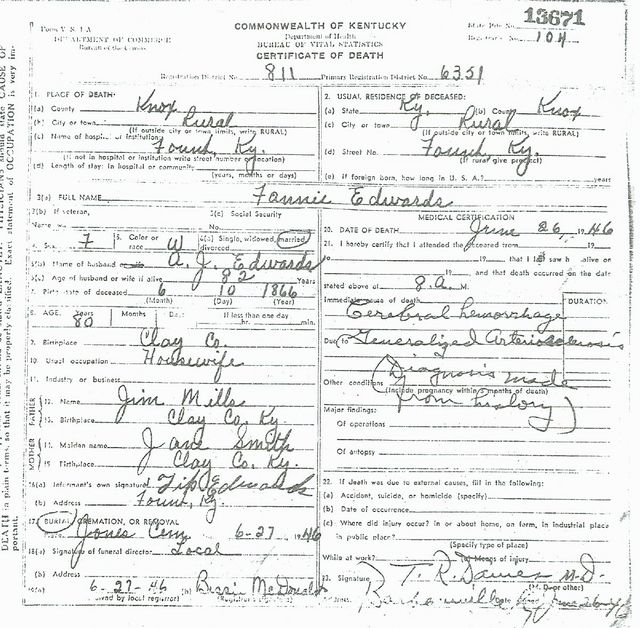 Form V. S. 1-A
COMMONWEALTH OF KENTUCKY
State File No. 13671
DEPARTMENT OF COMMERCE
Department of Health
Bureau of the Census
BUREAU OF VITAL STATISTICS
Registrar's No. 104
CERTIFICATE OF DEATH
Registration District No. 811 Primary Registration District No. 6351
1. PLACE OF DEATH:
(a) County Knox
(b) City or town Rural
(If outside city or town limits, write RURAL)
(c) Name of hospital or institution:
Fount, Ky.
(If not in hospital or institution write street number or location)
(d) Length of stay: in hospital or community
(years, months or days)
2. USUAL RESIDENCE OF DECEASED:
(a) State Ky. (b) County Knox
(c) City or town Rural
(If outside city or town limits, write RURAL)
(d) Street No. Fount, Ky.
(If rural give precinct)
(e) If foreign born, how long in U. S. A.? years
3(a) FULL NAME Fannie Edwards
3(b) If veteran,
Name war
3(c) Social Security
No.
4. Sex F 5. Color or race W 6(a) Single, widowed, married, divorced
6(b) Name of husband A. J. Edwards
6(c) Age of husband or wife if alive 82 Years
7. Birth date of deceased 6 10 1866
(Month) (Day) (Year)
8. AGE: Years Months Days If less than one day
80 hr. min.
9. Birthplace Clay Co.
10. Usual occupation Housewife
11. Industry or business
FATHER
12. Name Jim Mills
13. Birthplace Clay Co. Ky
MOTHER
14. Maiden name Jane Smith
15. Birthplace Clay Co. Ky.
16(a) Informant's own signature Tip Edwards
(b) Address Fount, Ky.
17. BURIAL, CREMATION, OR REMOVAL
Jones Cem 6-27 1946
18(a) Signature of funeral director Local
(b) Address
19(a) 6-27-46 (b) Bessie McDonald
MEDICAL CERTIFICATION
20. DATE OF DEATH June 26, 1946
21. I hereby certify that I attended the deceased from 19
to 19 that I last saw h alive on
19 and that death occurred on the date
stated above at 8. A. M.
Immediate cause of death DURATION
Cerebral hemorrhage
Due to Generalized Arteriosclerosis
Other conditions (Diagnosis made
(Include pregnancy within 3 months of death)
from history)
Major findings:
Of operations
Of autopsy
22. If death was due to external causes, fill in the following:
(a) Accident, suicide, or homicide (specify)
(b) Date of occurrence
(c) Where did injury occur? in or about home, on farm, in industrial place
in public place?
(Specify type of place)
While at work? (e) Means of injury
23. Signature T. R. Davies M.D.
(M. D. or other)